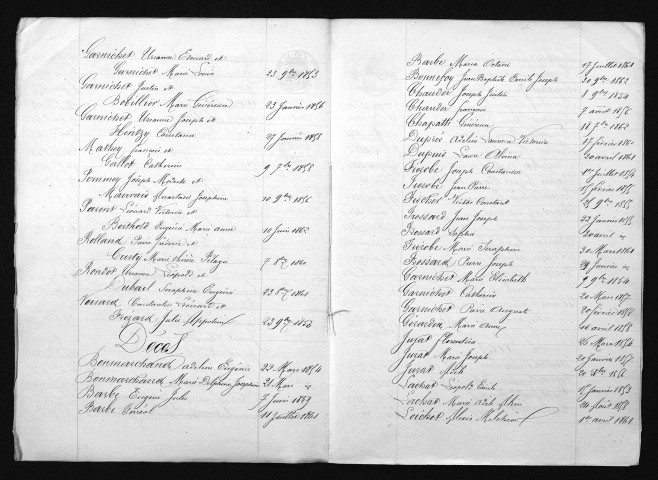 Garnichet Ursanne Edouard et
Garnichet Marie Louise 23 9bre 1853
Garnichet Justin et
Bobillier Marie Généreuse 23 Janvier 1856
Garnichet Ursanne Joseph et
Hentzy Constance 27 Janvier 1858
Mathey François et
Gallot Catherine 9 7bre 1858
Pommey Joseph Modeste et
Mauvais Anastasie Josephine 10 9bre 1856
Parent Léonard Victorin et
Berthold Eugénie Marie Anne 10 Juin 1862
Rolland Pierre et
Curty Marie Thérèse Pélagie 7 8bre 1860
Rondot Ursanne Léopold et
Dubail Séraphine Eugénie 23 1861
Voisard Constantin et
Frézard Julie 23 9bre 1853
Décès
Bonmarchand Adeline Eugénie 22 Mars 1854
Bonmarchand Marie Delphine Josephine 21 Mars "
Barbe Eugène Jules 7 Juin 1859
Barbe 21 Juillet 1861
Barbe Maria Octavie 17 Juillet 1861
Bonnefoy Jean Baptiste Emile Joseph 20 9bre 1862
Chaudor Joseph Justin 8 9bre 1854
Chaudor François 7 août 1856
Chapatte Généreux 18 7bre 1862
Dupré Adeline Laurence Victorine 17 février 1861
Dupuis Laure Alvina 30 avril 1861
Froobe Joseph Constantin 1er Juillet 1854
Jean Pierre 15 février 1855
Constant 25 9bre 1855
Frossard Jean Joseph 22 Janvier 1858
Frossard Sophie 30 avril "
Marie Séraphine 20 Mars 1860
Frossard Pierre Joseph 29 Janvier "
Garnichet Marie Elisabeth 7 9bre 1854
Garnichet Catherine 20 Mars 1857
Garnichet Pierre Auguste 20 février 1858
Girardin Marie Anne 26 avril 1858
Juzat Florentin 25 Mars 1854
Juzat Marie Joseph 20 Janvier 1857
Juzat 20 8bre 1858
Lachat Léopold Emile 15 Janvier 1853
Lachat Marie Adèle 30 Août 1858
Loichot Alexis 1er avril 1861